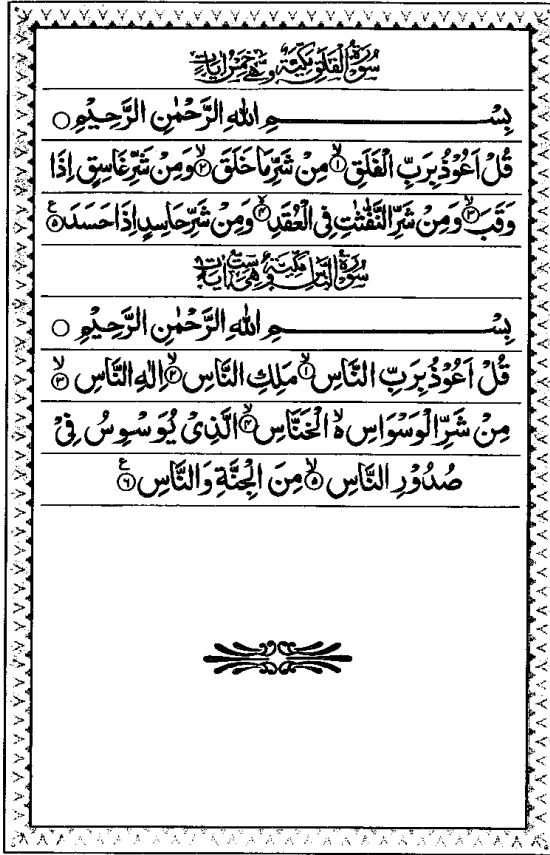 سُوْرَةُ الْفَلَقِ مَكِّيَّةٌ وَّهِيَ خَمْسُ اٰيَاتٍ
بِسْــــــــــــــــــــمِ اللهِ الرَّحْمٰنِ الرَّحِيْمِ ○
قُلْ اَعُوْذُ بِرَبِّ الْفَلَقِ ۙ‏﴿۱﴾ مِنْ شَرِّ مَا خَلَقَ ۙ‏﴿۲﴾ وَمِنْ شَرِّ غَاسِقٍ اِذَا
وَقَبَ ۙ‏﴿۳﴾ وَمِنْ شَرِّ النَّفّٰثٰتِ فِى الْعُقَدِ ۙ‏﴿۴﴾ وَمِنْ شَرِّ حَاسِدٍ اِذَا حَسَدَ ﴿۵﴾ ع
سُوْرَةُ النَّاسِ مَكِّيَّةٌ وَّهِيَ سِتُّ اٰيَاتٍ
بِسْــــــــــــــــــــمِ اللهِ الرَّحْمٰنِ الرَّحِيْمِ ○
قُلْ اَعُوْذُ بِرَبِّ النَّاسِ ۙ‏﴿۱﴾ مَلِكِ النَّاسِ ۙ‏﴿۲﴾ اِلٰهِ النَّاسِ ۙ‏﴿۳﴾
مِنْ شَرِّ الْوَسْوَاسِ ۙ۬ الْخَنَّاسِ ۙ‏﴿۴﴾ الَّذِىْ يُوَسْوِسُ فِىْ
صُدُوْرِ النَّاسِ ۙ‏﴿۵﴾ مِنَ الْجِنَّةِ وَالنَّاسِ ﴿۶﴾ ع